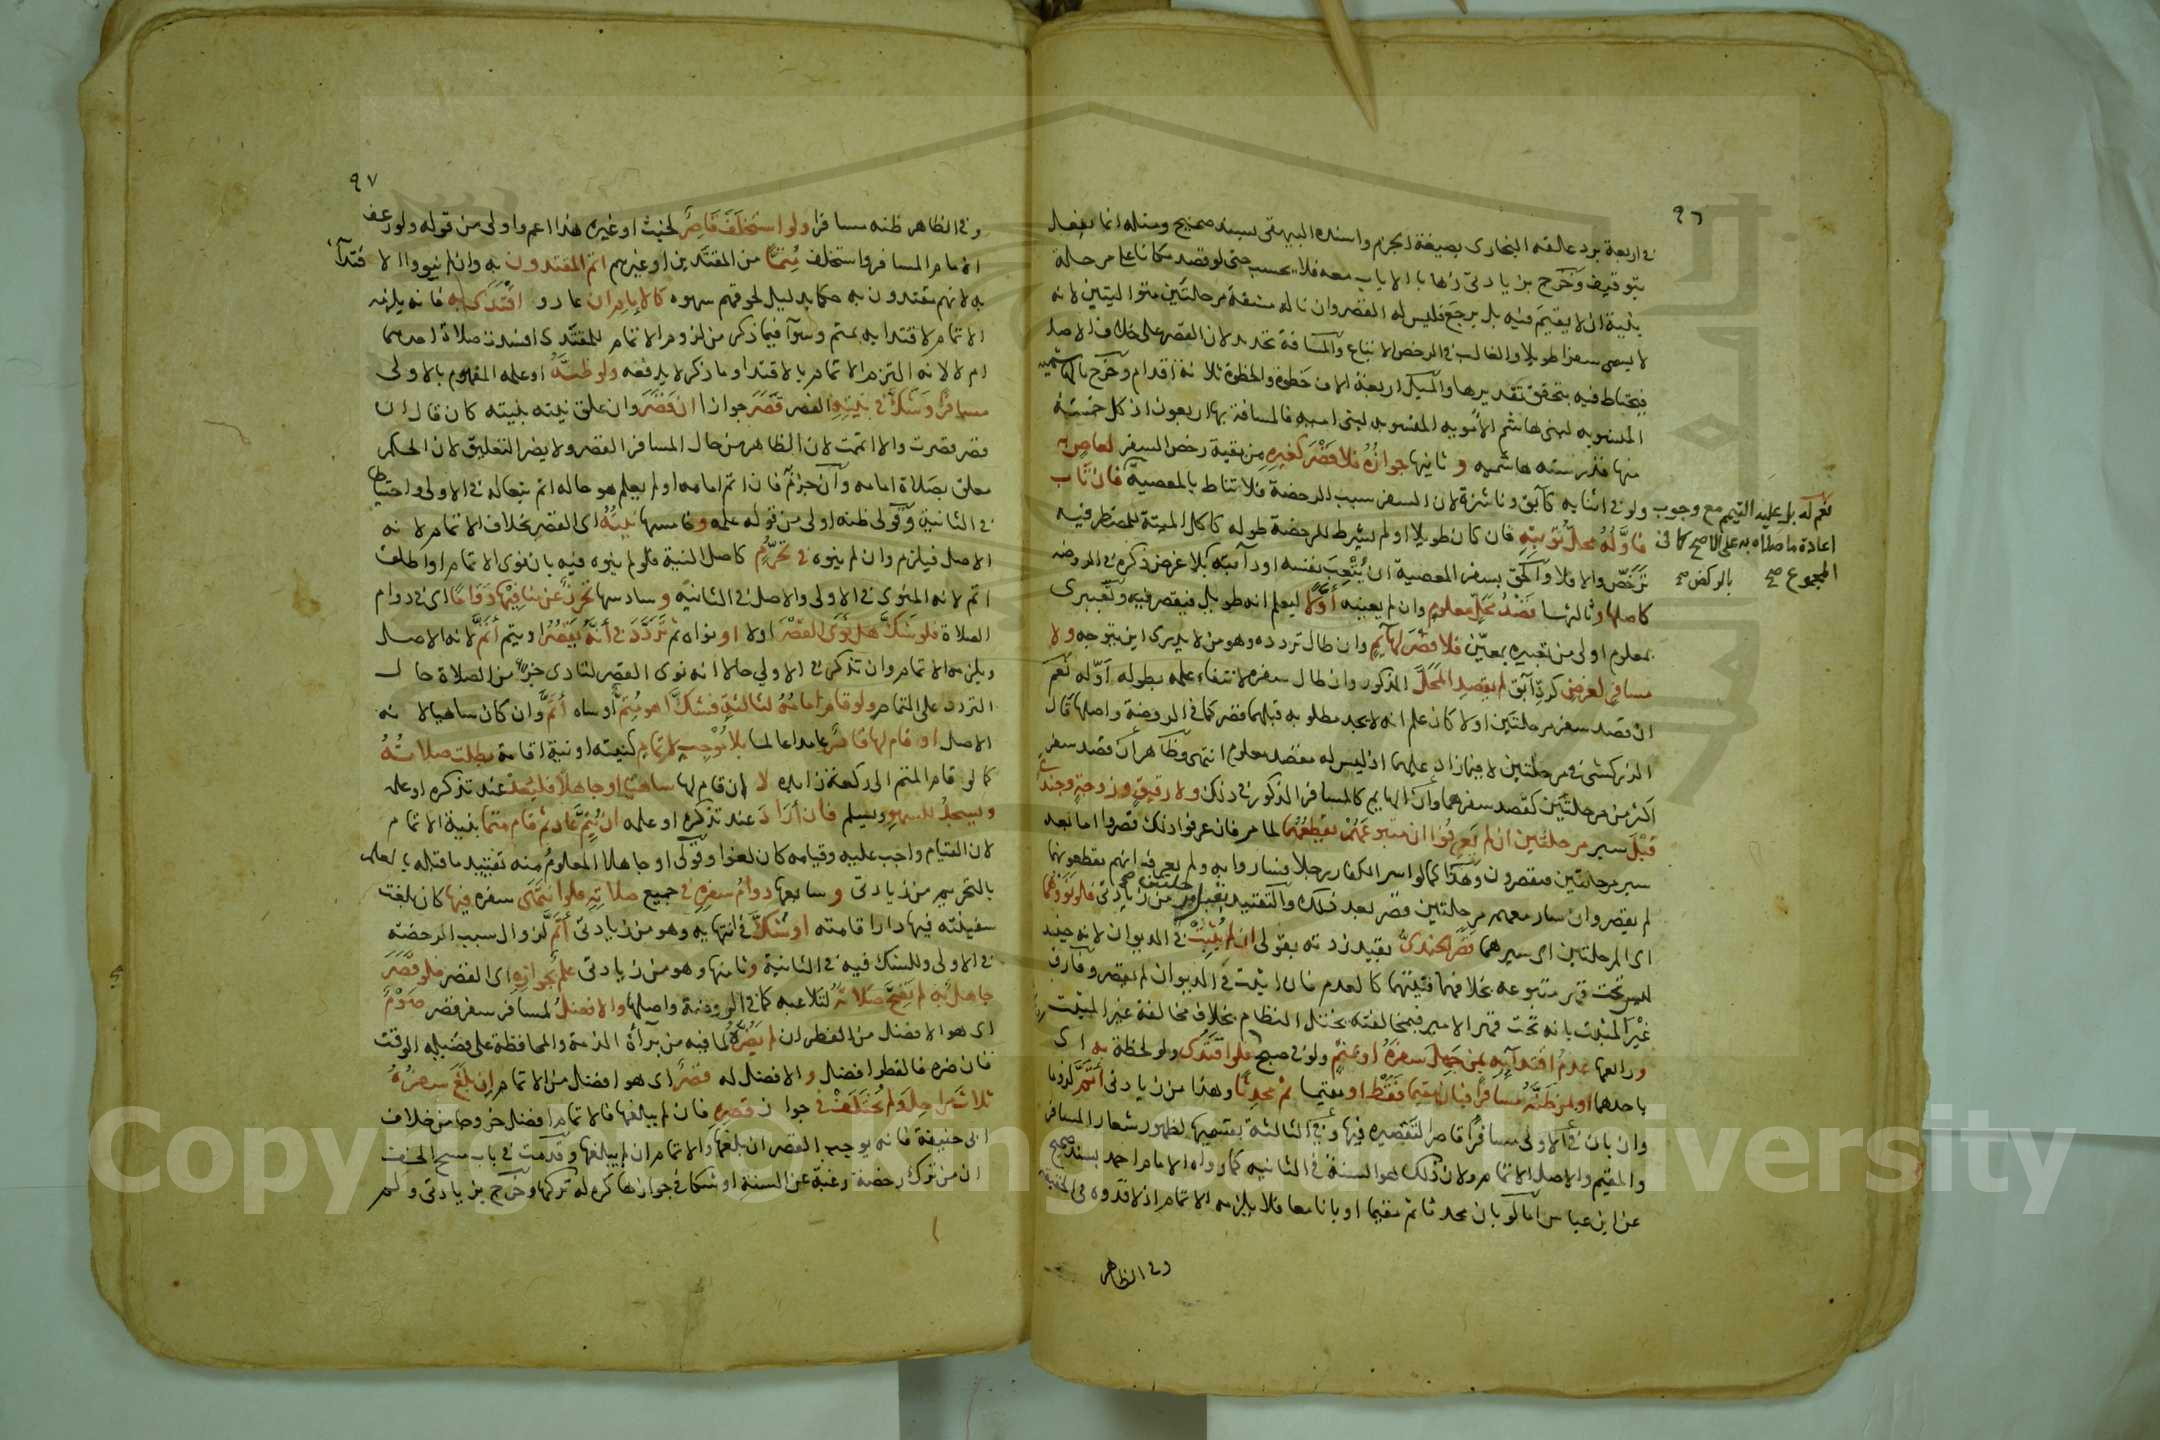 ٩٦
في اربعة برد علقه البخاري بصيغة الجزم واسنده البيهقي بسند صحيح ومثله انما يفعل
بتوقيف وخرج بزيادتي ذهابا الاياب معه فلا يحسب حتى لو قصد مكانا على مرحلة
بنية ان لا يقيم فيه بل يرجع فليس له القصر وان ناله مشقة مرحلتين متواليتين لانه
لا يسمى سفرا طويلا والغالب في الرخص الاتباع والمسافة تحديد لان القصر على خلاف الاصل
فيحتاط فيه بتحقق تقديرها والميل اربعة الاف خطوة والخطوة ثلاثة اقدام وخرج بالهاشمية
المنسوبه لبني هاشم الاموية المنسوبه لبني اميه فالمسافة بها اربعون اذ كل خمسة
منها قدر ستة هاشميه و ثانيها جوازه فلا قصر كغيره من بقية رخص السفر لعاص به
ولو في اثنايه كآبق وناشزة لان السفر سبب الرخصة فلا تناط بالمعصية فان تاب
فاوله محل توبته فان كان طويلا او لم يشرط للرخصة طوله كاكل الميتة للمضطر فيه
ترخص والا فلا وألحق بسفر المعصية ان يتعب نفسه او دابته بلا غرض ذكره في الروضة
كاصلها وثالثها قصد محل معلوم وان لم يعينه أولا ليعلم انه طويل فيقصر فيه وتعبيري
بمعلوم اولى من تعبيره بمعين فلا قصر لهايم وان طال تردده وهو من لا يدري اين يتوجه ولا
مسافر لغرض كرد آبق لم يقصد المحل المذكور وان طال سفره لانتفاء علمه بطوله اوله نعم
ان قصد سفر مرحلتين اولا كان علم انه لا يجد مطلوبه قبلهما قصر كما في الروضة واصلها قال
الزركشي في مرحلتين لا فيما زاد عليهما اذ ليس له مقصد معلوم انتهى وظاهر أن قصد سفر
اكثر من مرحلتين كقصد سفرهما وأن الهايم كالمسافر المذكور في ذلك ولا رقيق وزوجة وجندي
قبل سير مرحلتين ان لم يعرفوا ان متبوعهم يقطعهما لما مر فان عرفوا ذلك قصروا اما بعد
سير مرحلتين فيقصرون وهكذا كما لو اسر الكفار رجلا فساروا به ولم يعرف انهم يقطعونهما
لم يقصر وان سار معهم مرحلتين قصر بعد ذلك والتقييد بقبل من زيادتي فلو نووهما
اي المرحلتين اي سيرهما قصر الجندي بقيد زدته بقولي ان لم يثبت في الديوان لانه حينئذ
ليس تحت قهر متبوعه بخلافهما فنيتهما كالعدم فان اثبت في الديوان لم يقصر وفارق
غير المثبت بانه تحت قهر الامير فبمخالفته يختل النظام بخلاف مخالفة غير المثبت
ورابعها عدم اقتدايه بمن جهل سفره او بمتم ولو في صبح فلو اقتدى ولو لحظة به اي
باحدهما او بمن ظنه مسافرا فبان مقيما فقط او مقيما ثم محدثا وهذا من زيادتي أتم لزوما
وان بان في الاولى مسافرا قاصرا لتقصيره فيها وفي الثالثة بقسميها لظهور شعار المسافر
والمقيم والاصل الاتمام ولان ذلك هو السنة في الثانيه كما رواه الامام احمد بسند صحيح
عن ابن عباس اما لو بان محدثا ثم مقيما او بانا معا فلا يلزمه الاتمام اذ لا قدوه في الحقيقة
وفي الظاهر
نعم له بل عليه التيمم مع وجوب
اعادة ما صلاه به على الاصح كما في
المجموع صح
بالركض صح
حلتين صح
٩٧
وفي الظاهر ظنه مسافرا ولو استخلف قاصر لخبث او غيره هذا اعم واولى من قوله ولو رعف
الامام المسافر واستخلف متما من المقتدين او غيرهم اتم المقتدون به وان لم ينووا الاقتدآء
به لانهم مقتدون به حكما بدليل لحوقهم سهوه كالامام ان عاد و اقتدى به فانه يلزمه
الاتمام لاقتدايه بمتم وسوآ فيما ذكر من لزوم الاتمام للمقتدي افسدت صلاة احدهما
ام لا لانه التزم الاتمام بالاقتداء وما ذكر لا يدفعه ولو ظنه او علمه المفهوم بالاولى
مسافرا وشك في نيته القصر قصر جوازا ان قصر وان علق نيته بنيته كان قال ان
قصر قصرت والا اتممت لان الظاهر من حال المسافر القصر ولا يضر التعليق لان الحكم
معلق بصلاة امامه وآن جزم فان اتم امامه او لم يعلم هو حاله اتم بتعاله في الاولى واحتياطا
في الثانية وقولي ظنه اولى من قوله علمه وخامسها نيته اي القصر بخلاف الاتمام لانه
الاصل فيلزم وان لم ينوه في تحرم كاصل النية فلو لم ينوه فيه بان نوى الاتمام او اطلق
اتم لانه المنوي في الاولى والاصل في الثانية وسادسها تحرز عن منافيها دواما اي في دوام
الصلاة فلو شك هل نوى القصر اولا او نواه ثم تردد في أنه يقصر او يتم أتم لانه الاصل
ويلزمه الاتمام وان تذكر في الاولى حالا انه نوى القصر لتادي جزء من الصلاة حال
التردد على التمام ولو قام امامه لثالثة فشك أهو متم أو ساه أتم وان كان ساهيا لانه
الاصل او قام لها قاصر عامدا عالما بلا موجب لاتمام كنيته او نية اقامة بطلت صلاته
كما لو قام المتم الى ركعة زايده لا إن قام لها ساهيا او جاهلا فليعد عند تذكره او علمه
ويسجد للسهو ويسلم فان أراد عند تذكره او علمه ان يتم عاد ثم قام متما بنية الاتمام
لان القيام واجب عليه وقيامه كان لغوا وقولي او جاهلا المعلوم منه تقييد ما قبله بالعلم
بالتحريم من زيادتي وسابعها دوام سفره في جميع صلاته فلو انتهى سفره فيها كان بلغت
سفينته فيها دار اقامته او شك في انتهايه وهو من زيادتي أتم لزوال سبب الرخصة
في الاولى وللشك فيه في الثانية وثامنها وهو من زيادتي علم بجوازه اي القصر فلو قصر
جاهل به لم تصح صلاته لتلاعبه كما في الروضة واصلها والافضل لمسافر سفر قصر صوم
اي هو الافضل من الفطر ان لم يضره لما فيه من برآة الذمة والمحافظة على فضيلة الوقت
فان ضره فالفطر افضل و الافضل له قصر اي هو افضل من الاتمام ان بلغ سفره
ثلاث مراحل ولم يختلف في جواز قصره فان لم يبلغها فالاتمام افضل خروجا من خلاف
ابي حنيفة فانه يوجب القصر ان بلغها والاتمام ان لم يبلغها وقدمت في باب مسح الخف
ان من ترك رخصة رغبة عن السنة او شكا في جوازها كره له تركها وخرج بزيادتي ولم
Copyright © King Saud University